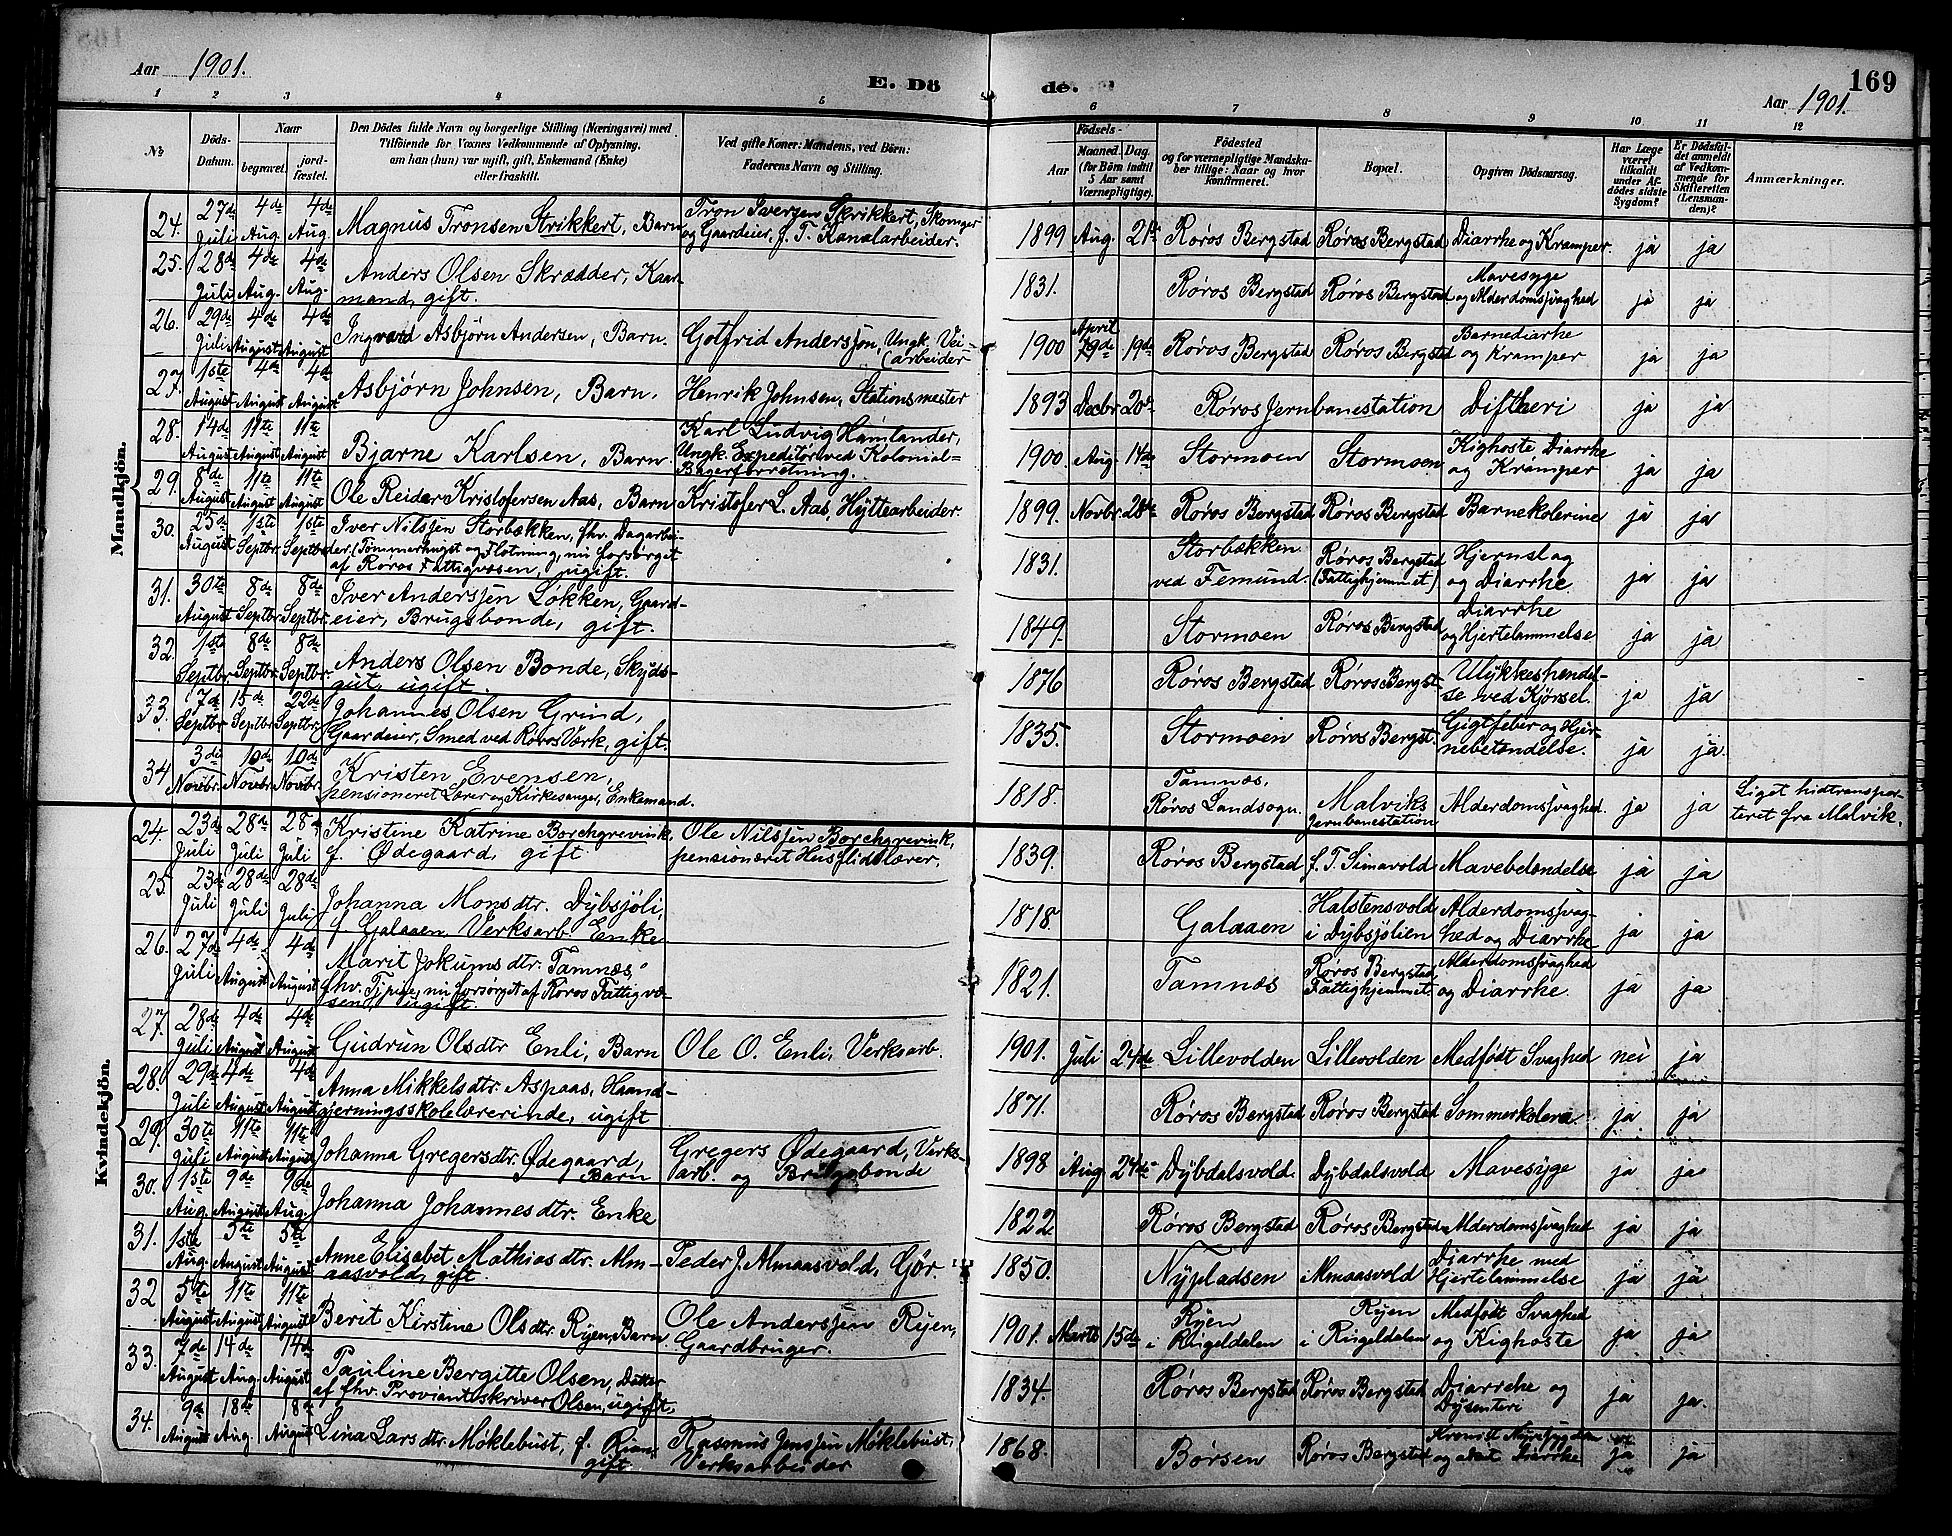 Aar 1901.
E. Dö de.
169
Aar 1901.
1 2 3 4 5 6 7 8 9 10 11 12
№
Döds-Datum.
Naar
begravet.
jord-fæstet.
Den Dödes fulde Navn og borgerlige Stilling (Næringsvei) med
Tilföiende for Voxnes Vedkommende af Oplysning,
om han (hun) var ugift, gift, Enkemand (Enke)
eller fraskilt.
Ved gifte Koner: Mandens, ved Börn:
Faderens Navn og Stilling.
Födsels-
Aar
Maaned. Dag.
(for Börn indtil
5 Aar samt
Værnepligtige).
Födested
og for værnepligtige Mandska-
ber tillige: Naar og hvor
konfirmeret.
Bopæl.
Opgiven Dödsaarsag.
Har Læge
været
tilkaldt
under Af-
dödes sidste
Sygdom?
Er Dödsfal-
det anmeldt
af Vedkom-
mende for
Skifteretten
(Lensman-
den)?
Anmærkninger.
Mandkjön.
24. 27de Juli 4de Aug. 4de Aug Magnus Tronsen Strikkert, Barn Tron Iversen Skrikkert, Skomager
og Gaardeier, f. T. Kanalarbeider. 1899 Aug. 21de Røros Bergstad Røros Bergstad Diarrhe og Kramper. ja ja
25. 28de Juli 4de Aug. 4de Aug. Anders Olsen Skrædder, Kaar-
mand, gift. 1831. Røros Bergstad Røros Bergstad Mavesyge
og Alderdomssvaghed ja ja
26. 29de Juli 4de August 4de August Ingvard Asbjörn Andersen, Barn. Gotfrid Anderssön, Ungk. Vei-
arbeider 1900 April 19de Røros Bergstad Røros Bergstad Barnediarhe
og Kramper ja ja
27. 1ste August 4de August 4de August Asbjörn Johnsen, Barn. Henrik Johnsen, Stationsmester 1893 Decbr 20de Röros Jernbanestation Difteri ja ja
28. 14de August 11te August 11te August Bjarne Karlsen, Barn Karl Ludvig Hamlander,
Ungk. Expeditör ved Kolonial-
Bagerforretning. 1900 Aug. 14de Stormoen Stormoen Kighoste, Diarrhe
og Kramper ja ja
29. 8de August 11te August 11te August Ole Reidar Kristofersen Aas, Barn Kristofer L. Aas, Hyttearbeider. 1899. Novbr. 28de Røros Bergstad Røros Bergstad Barnekolerine ja ja
30. 25de August 1ste Septbr 1ste Septbr Iver Nilssen Storbækken, fhv. Dagarbei-
der (Tömmerhugst og Flötning, nu forsörget
af Röros Fattigvæsen, ugift. 1831. Storbækken
ved Femund. Røros Bergstad
(Fattighjemmet) Hjernslag
og Diarrhe ja ja
31. 30te August 8de Septbr 8de Septbr. Iver Anderssen Lökken, Gaard-
eier, Brugsbonde, gift. 1849. Stormoen Røros Bergstad Diarrhe
og Hjertelammelse ja ja
32. 1ste Septbr. 8de Septbr 8de Septbr. Anders Olsen Bonde, Skyds-
gut, ugift. 1876 Røros Bergstad Røros Bergst. Ulykkeshendel-
se ved Kjörsel. ja ja
33. 7de Septbr 15de Septbr 22de Septbr. Johannes Olsen Grind,
Gaardeier, Smed ved Röros Værk, gift. 1835. Stormoen Røros Bergst. Gigtfeber og Hjer-
nebetændelse. ja ja.
34 3die Novbr. 10de Novbr 10de Novbr. Kristen Evensen,
pensioneret Lærer og Kirkesanger, Enkemand. 1818. Tamnæs,
Röros Landsogn. Malvik
Jernbanestation Alderdomssvaghed. ja ja Liget hidtranspor-
teret fra Malvik.
Kvindekjön.
24. 23de Juli 28de Juli 28de Juli Kristine Katrine Borchgrevink,
f. Ødegaard, gift Ole Nilssen Borchgrevink,
pensioneret Husflidslærer. 1839. Røros Bergstad f. T. Simavold Mavebetændelse ja ja
25. 23de Juli 28de Juli 28de Juli Johanna Monsdtr. Dybsjöli,
f. Galaaen, Verksarb. Enke 1818. Galaaen Halstensvold
i Dybsjölien Alderdomssvag-
hed og Diarrhe ja ja
26. 27de Juli 4de August 4de August Marit Jokumsdtr. Tamnæs,
fhv. Tjene, nu forsörget af Röros Fattigvæ-
sen, ugift 1821. Tamnæs Røros Bergstad
Fattighjemmet. Alderdomssvaghed
og Diarrhe. ja ja
27. 28de Juli 4de August 4de August Gudrun Olsdtr Enli, Barn Ole O. Enli, Verksarb. 1901. Juli 24de Lillevolden Lillevolden Medfödt Svaghed nei ja
28. 29de Juli 4de August 4de August Anna Mikkelsdtr. Aspaas, Haand-
gjerningsskolelærerinde, ugift 1871. Røros Bergstad Røros Bergstad Sommerkolera. ja ja
29. 30te Juli 11te August 11te August Johanna Gregersdtr. Ødegaard,
Barn Gregers Ødegaard, Verks-
arb. og Brugsbonde 1898 Aug 24de Dybdalsvold. Dybdalsvold Mavesyge ja ja
30. 1ste Aug. 9de August 9de Aug. Johanna Johannesdtr. Enke 1822 Røros Bergstad Røros Bergstad Alderdomssvaghed ja ja
31. 1ste Aug. 5te August 5te August Anne Elisabet Mathiasdtr. Alm-
aasvold, gift. Peder J. Almaasvold, Gjör. 1850. Nypladsen Almaasvold Diarrhe med
Hjertelammelse ja ja
32 5te August 11te August 11te August Berit Kirstine Olsdtr. Ryen, Barn Ole Anderssen Ryen,
Gaardbruger. 1901 Marts 15de Ryen
i Rugeldalen Ryen
i Rugeldalen Medfödt Svaghed
og Kighoste ja ja
33. 7de August 14de Aug. 14de August Pauline Bergitte Olsen, Datter
af fhv. Proviantskriver Olsen, ugift. 1834. Røros Bergstad Røros Bergstad Diarrhe og
Dysenteri ja ja.
34. 9de August 18de Aug. 18de August Lina Larsdtr. Möklebust, f. Rian
gift Rasmus Jenssen Möklebust,
Verksarbeider 1868. Börsen Røros Bergstad Kronisk Nyresygdom
og akut Diarrhe ja ja